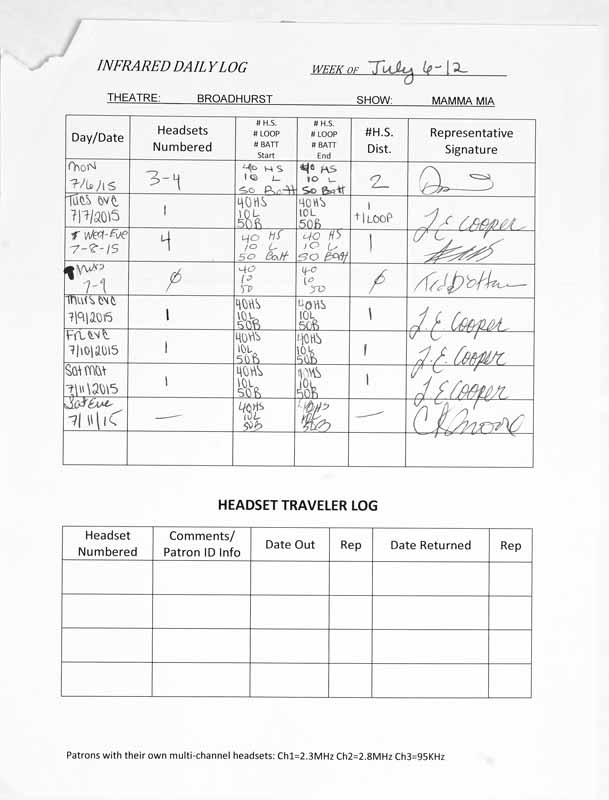 INFRARED DAILY LOG WEEK OF July 6-12
THEATRE: BROADHURST SHOW: MAMMA MIA
Day/Date
Headsets
Numbered
# H.S.
# LOOP
# BATT
Start
# H.S.
# LOOP
# BATT
End
#H.S.
Dist.
Representative
Signature
Mon
7/6/15
3-4
40 HS
10 L
50 Batt
40 HS
10 L
50 Batt
2
Tues eve
7/7/2015
1
40HS
10L
50B
40HS
10L
50B
1
+1 LOOP
J.E. Cooper
Wed-Eve
7-8-15
4
40 HS
10 L
50 Batt
40 HS
10 L
50 Batt
1
Thurs
7-9
φ
40
10
50
40
10
50
φ
Thurs eve
7/9/2015
1
40HS
10L
50B
40HS
10L
50B
1
J.E. Cooper
Fri eve
7/10/2015
1
40HS
10L
50B
40HS
10L
50B
1
J.E. Cooper
Sat Mat
7/11/2015
1
40HS
10L
50B
40HS
10L
50B
1
J.E. Cooper
Sat Eve
7/11/15
—
40HS
10L
50B
40HS
10L
50B
—
HEADSET TRAVELER LOG
Headset
Numbered
Comments/
Patron ID Info
Date Out
Rep
Date Returned
Rep
Patrons with their own multi-channel headsets: Ch1=2.3MHz Ch2=2.8MHz Ch3=95KHz